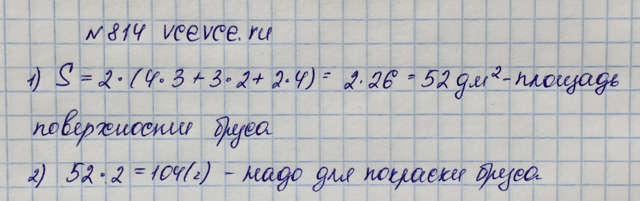 № 814 vcevce.ru
1) S = 2·(4·3+3·2+2·4) = 2·26 = 52 дм² - площадь
поверхности бруса
2) 52·2 = 104(г) - надо для покраски бруса.